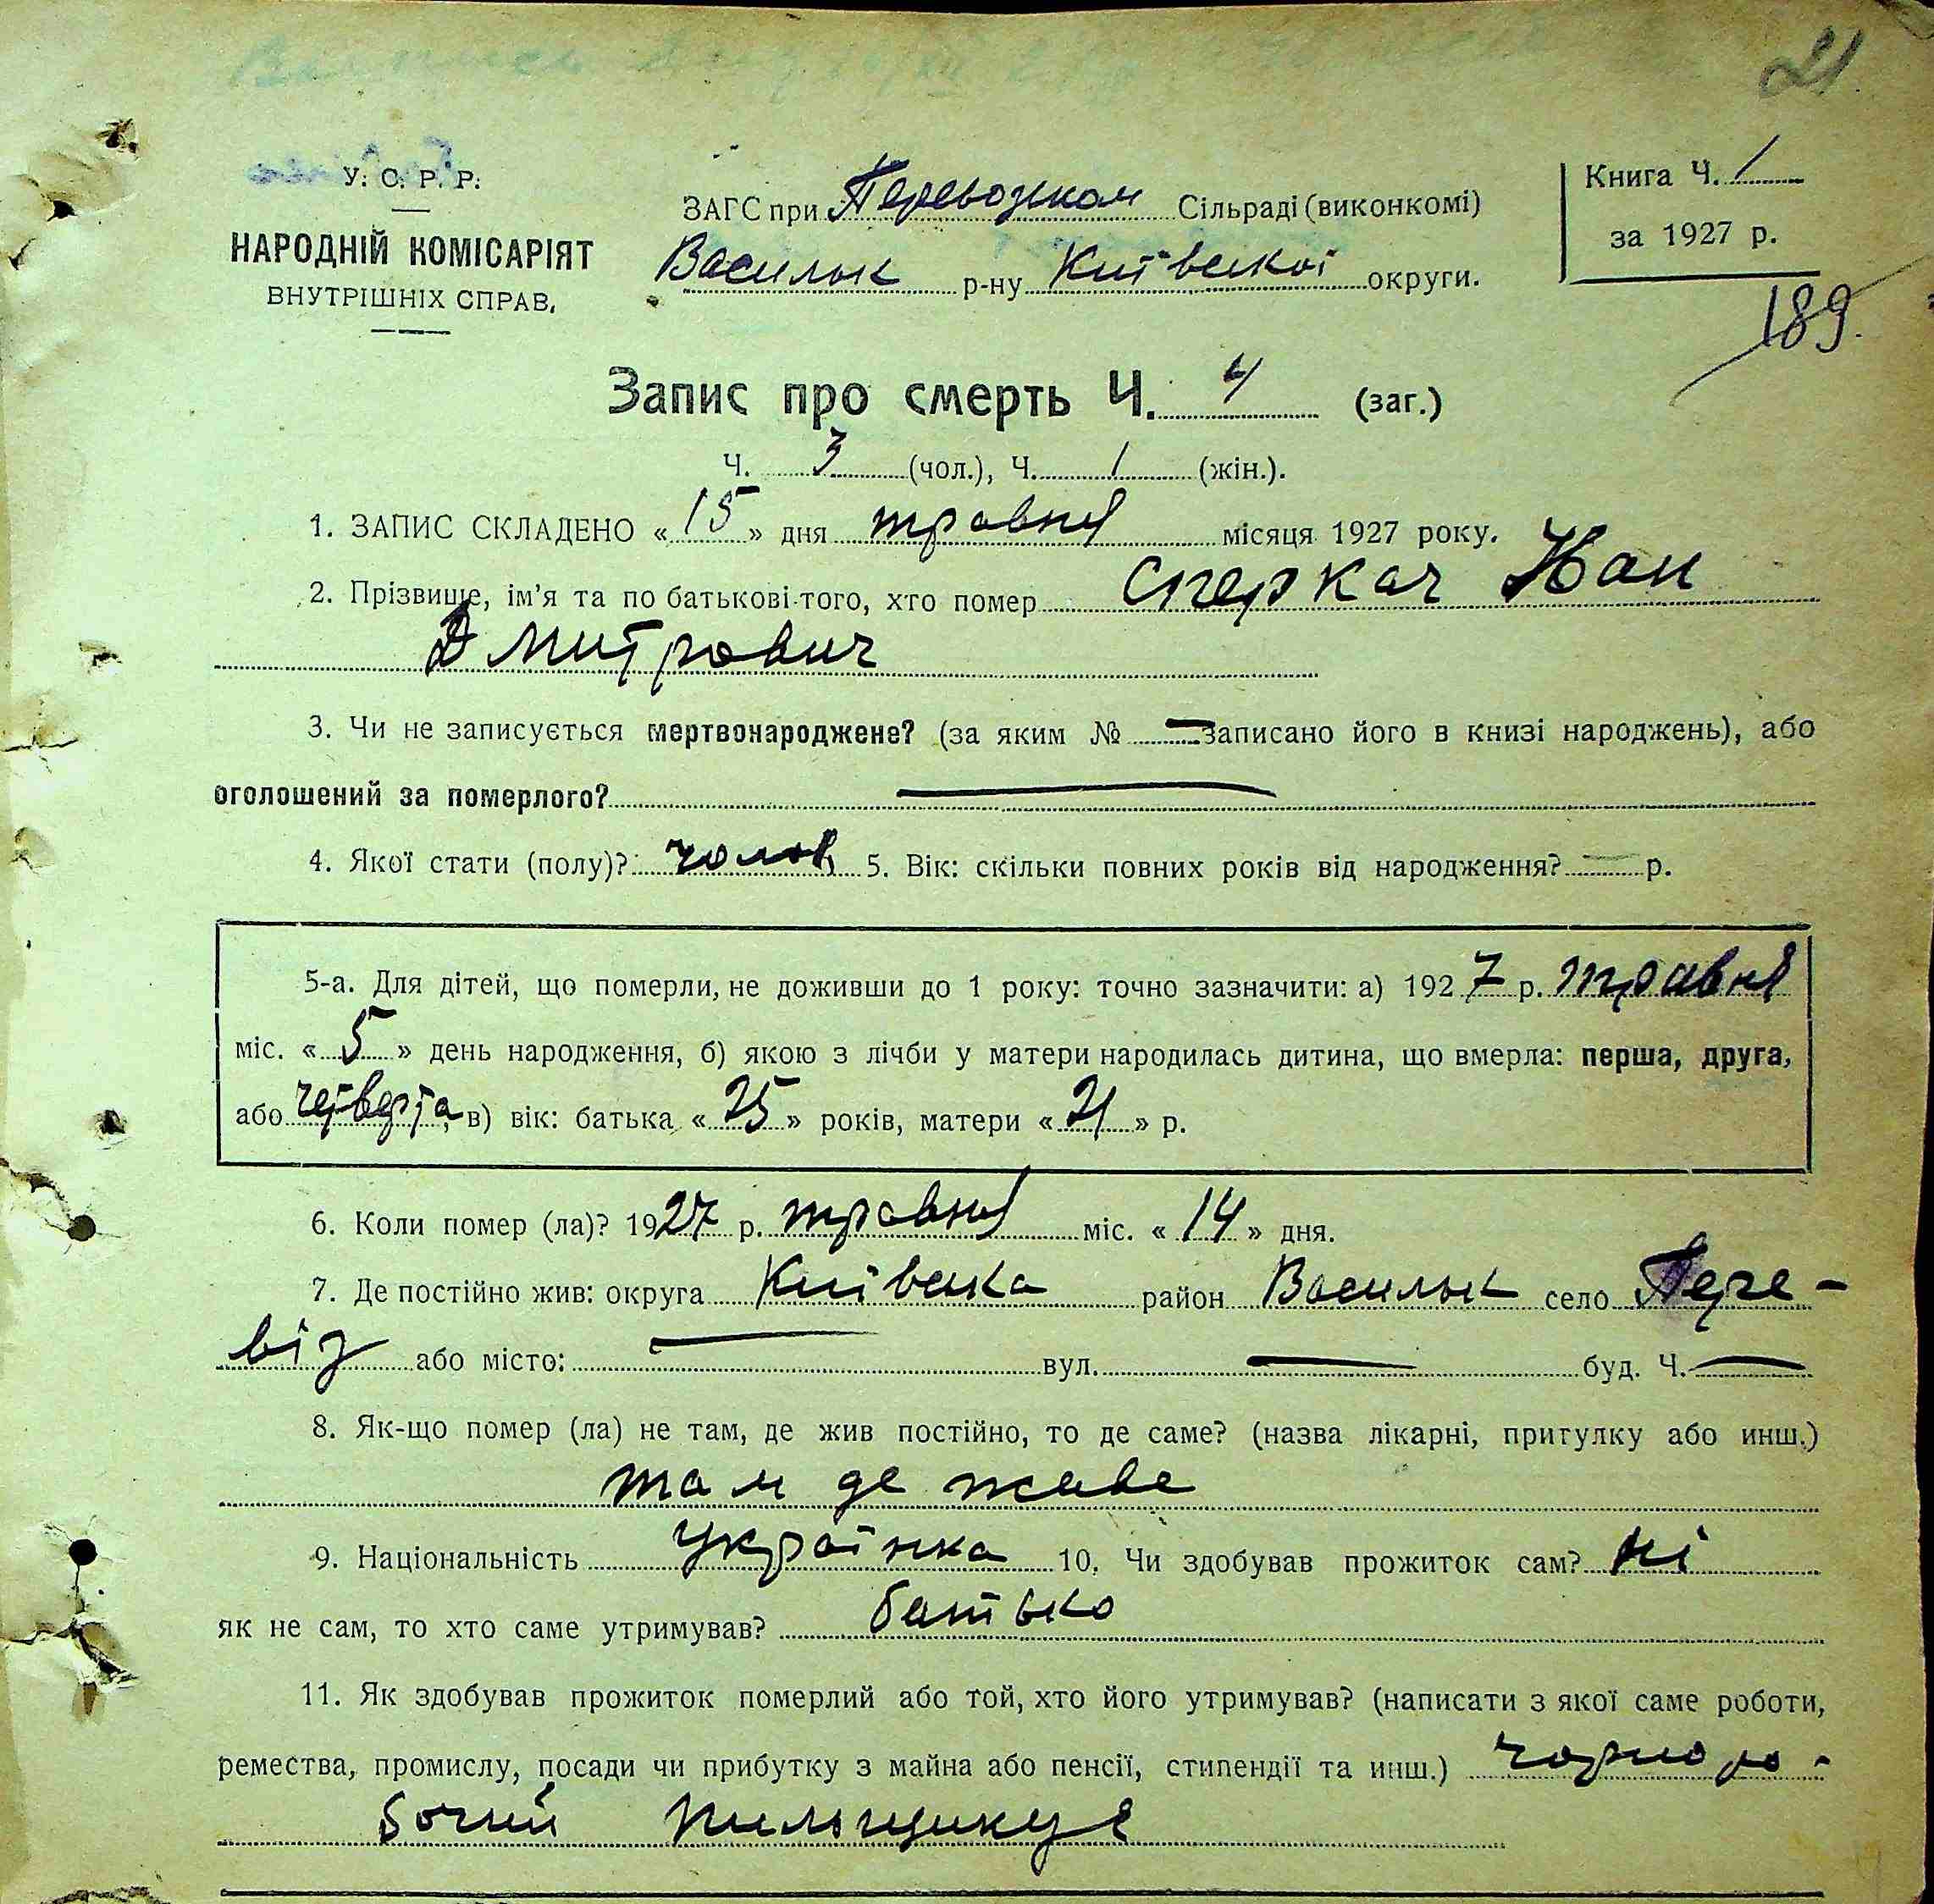 21
У. С. Р. Р.
НАРОДНІЙ КОМІСАРІЯТ
ВНУТРІШНІХ СПРАВ.
ЗАГС при Перевозском Сільраді (виконкомі)
Васильк р-ну Київської округи.
Книга Ч. 1
за 1927 р.
189.
Запис про смерть Ч. 4 (заг.)
Ч. 3 (чол.), Ч. 1 (жін.).
1. ЗАПИС СКЛАДЕНО «15» дня травня місяця 1927 року.
2. Прізвище, ім'я та по батькові того, хто помер Стеркач
Дмитрович
3. Чи не записується мертвонароджене? (за яким № — записано його в книзі народжень), або
оголошений за померлого? —
4. Якої стати (полу)? чолов 5. Вік: скільки повних років від народження? — р.
5-а. Для дітей, що померли, не доживши до 1 року: точно зазначити: а) 1927 р. травня
міс. «5» день народження, б) якою з лічби у матери народилась дитина, що вмерла: перша, друга,
або четверта, в) вік: батька «25» років, матери «21» р.
6. Коли помер (ла)? 1927 р. травня міс. «14» дня.
7. Де постійно жив: округа Київська район Васильк село Пере-
віз або місто: — вул. — буд. Ч. —
8. Як-що помер (ла) не там, де жив постійно, то де саме? (назва лікарні, притулку або инш.)
там де живе
9. Національність українка 10. Чи здобував прожиток сам? ні
як не сам, то хто саме утримував? батько
11. Як здобував прожиток померлий або той, хто його утримував? (написати з якої саме роботи,
ремества, промислу, посади чи прибутку з майна або пенсії, стипендії та инш.) чорноро-
бочий пильщикує